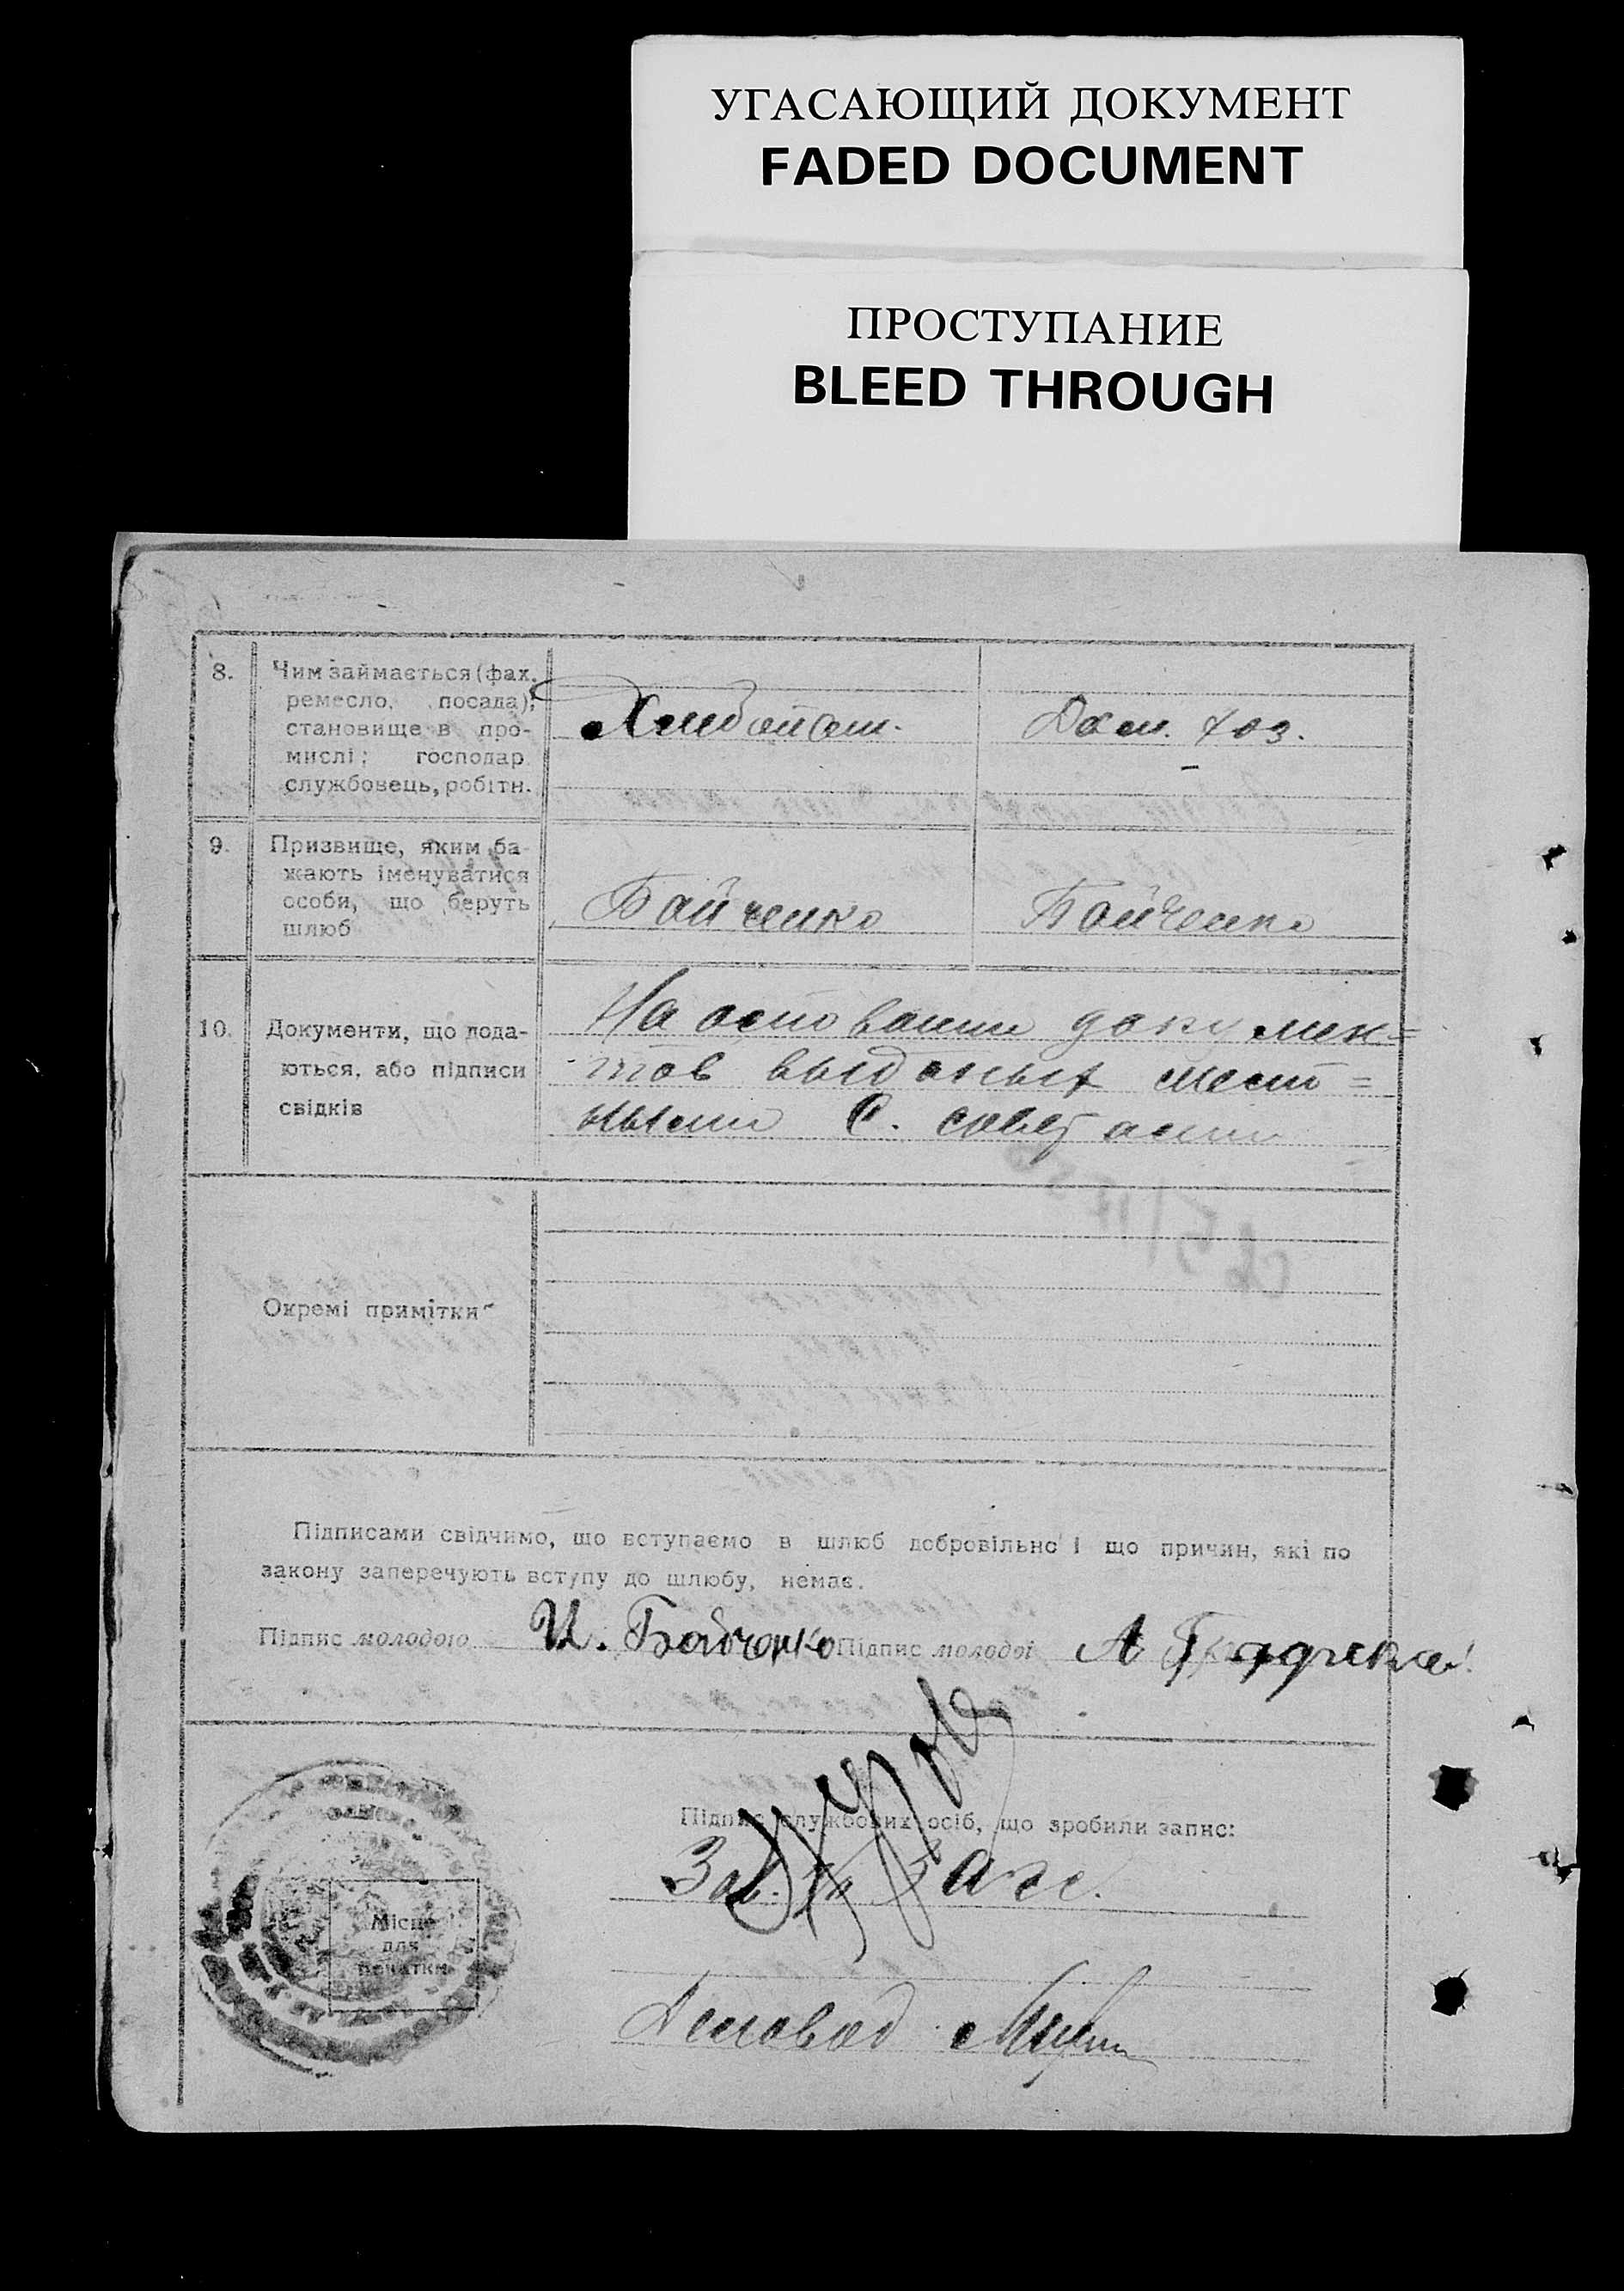 УГАСАЮЩИЙ ДОКУМЕНТ
FADED DOCUMENT
ПРОСТУПАНИЕ
BLEED THROUGH
8.
Чим займається (фах.
ремесло, посада);
становище в про-
мислі; господар
службовець, робітн.
Хлибопаш.
Дом. хоз.
9.
Призвище, яким ба-
жають іменуватися
особи, що беруть
шлюб
Байченко
Байченко
10.
Документи, що дода-
ються, або підписи
свідків
На основании докумен=
тов выданных мест=
ными С. советами
Окремі примітки
Підписами свідчимо, що вступаємо в шлюб добровільно і що причин, які по
закону заперечують вступу до шлюбу, немає.
Підпис молодого И. Байченко Підпис молодої А
Підпис службових осіб, що зробили запис:
Зав. Загс.
Місце
для
печатки
Деловод